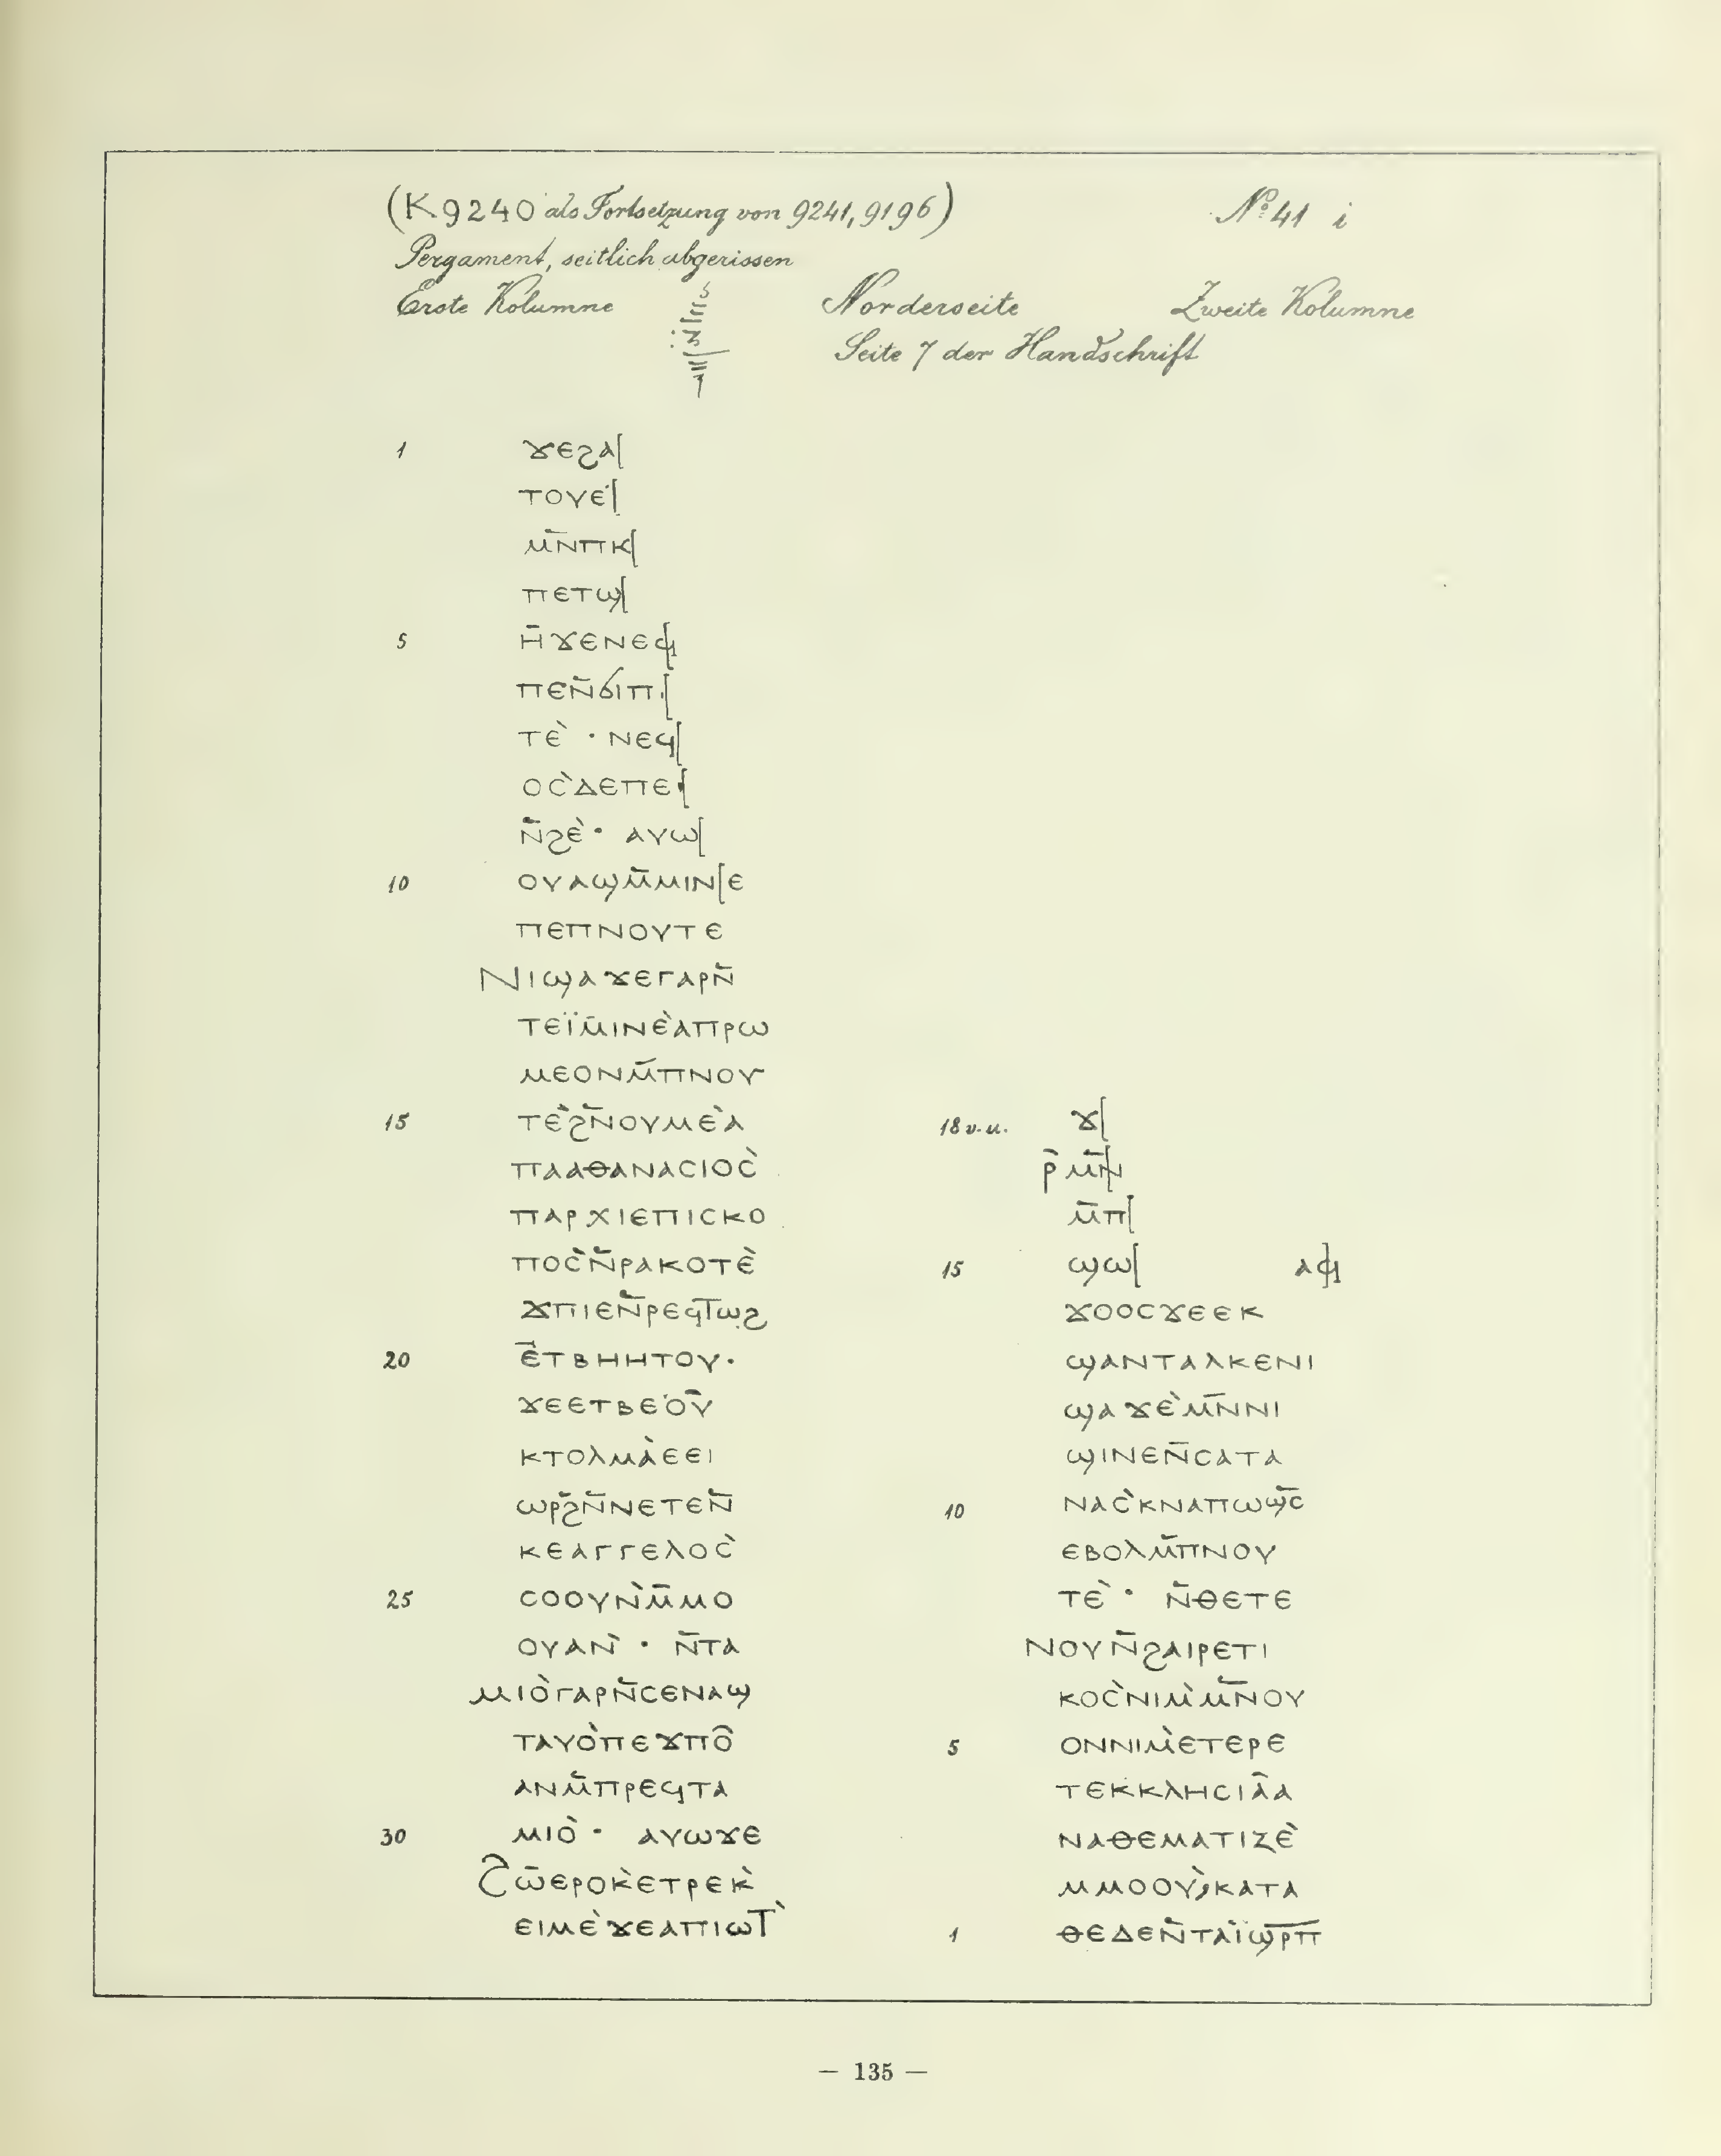 (K 9240 als Fortsetzung von 9241, 9196) No 41 i
Pergament, seitlich abgerissen
Erste Kolumne Vorderseite Zweite Kolumne
Seite 7 der Handschrift
1 ϫⲉϩⲁ[
ⲧⲟⲩⲉ[
ⲙ̄ⲛⲡⲕ[
ⲡⲉⲧϣ[
5 ⲏ̄ϫⲉⲛⲉϥ[
ⲡⲉⲛ̄ϭⲓⲡ[
ⲧⲉ̀ · ⲛⲉϥ[
ⲟⲥ̀ⲇⲉⲡⲉ[
ⲛ̄ϩⲉ̀ · ⲁⲩⲱ[
10 ⲟⲩⲁϣⲙ̄ⲙⲓⲛ[ⲉ
ⲡⲉⲡⲛⲟⲩⲧⲉ
ⲛⲓϣⲁϫⲉⲅⲁⲣⲛ̄
ⲧⲉⲓ̈ⲙ̄ⲓⲛⲉ̀ⲁⲡⲣⲱ
ⲙⲉⲟⲛⲙ̄ⲡⲛⲟⲩ
15 ⲧⲉ̀ϩⲛ̄ⲟⲩⲙⲉ̀ⲁ
ⲡⲁⲁⲑⲁⲛⲁⲥⲓⲟⲥ̀
ⲡⲁⲣⲭⲓⲉⲡⲓⲥⲕⲟ
ⲡⲟⲥ̀ⲛ̄ⲣⲁⲕⲟⲧⲉ̀
ϫⲡⲓⲉⲛ̄ⲣⲉϥⲧⲱϩ
20 ⲉ̄ⲧⲃⲏⲏⲧⲟⲩ·
ϫⲉⲉⲧⲃⲉⲟⲩ̄
ⲕⲧⲟⲗⲙⲁ̀ⲉⲉⲓ
ⲱⲣϩ̄ⲛ̄ⲛⲉⲧⲉⲛ̄
ⲕⲉⲁⲅⲅⲉⲗⲟⲥ̀
25 ⲥⲟⲟⲩⲛ̀ⲙ̄ⲙⲟ
ⲟⲩⲁⲛ̀ · ⲛ̄ⲧⲁ
ⲙⲓⲟ̀ⲅⲁⲣⲛ̄ⲥⲉⲛⲁϣ
ⲧⲁⲩⲟ̀ⲡⲉϫⲡⲟ̂
ⲁⲛⲙ̄ⲡⲣⲉϥⲧⲁ
30 ⲙⲓⲟ̀ · ⲁⲩⲱϫⲉ
ϩⲱ̄ⲉⲣⲟⲕ̀ⲉⲧⲣⲉⲕ̀
ⲉⲓⲙⲉ̀ϫⲉⲁⲡⲓⲱⲧ̀
18 v. u. ϫ[
ⲣ̄ⲙ̄ⲛ[
ⲙ̄ⲡ[
15 ϣⲱ[ ⲁϥ
ϫⲟⲟⲥϫⲉⲉⲕ
ϣⲁⲛⲧⲁⲗⲕⲉⲛⲓ
ϣⲁϫⲉ̀ⲙ̄ⲛⲛⲓ
ϣⲓⲛⲉⲛ̄ⲥⲁⲧⲁ
10 ⲛⲁⲥ̀ⲕⲛⲁⲡⲱϣ̄ⲥ
ⲉⲃⲟⲗⲙ̄ⲡⲛⲟⲩ
ⲧⲉ̀ · ⲛ̄ⲑⲉⲧⲉ
ⲛⲟⲩⲛ̄ϩⲁⲓⲣⲉⲧⲓ
ⲕⲟⲥ̀ⲛⲓⲙ̀ⲙ̄ⲛⲟⲩ
5 ⲟⲛⲛⲓⲙ̀ⲉⲧⲉⲣⲉ
ⲧⲉⲕⲕⲗⲏⲥⲓⲁ̂ⲁ
ⲛⲁⲑⲉⲙⲁⲧⲓⲍⲉ̀
ⲙⲙⲟⲟⲩ̀ⲕⲁⲧⲁ
1 ⲑⲉⲇⲉⲛ̄ⲧⲁⲓ̈ϣ̄ⲣ̄ⲡ̄
— 135 —